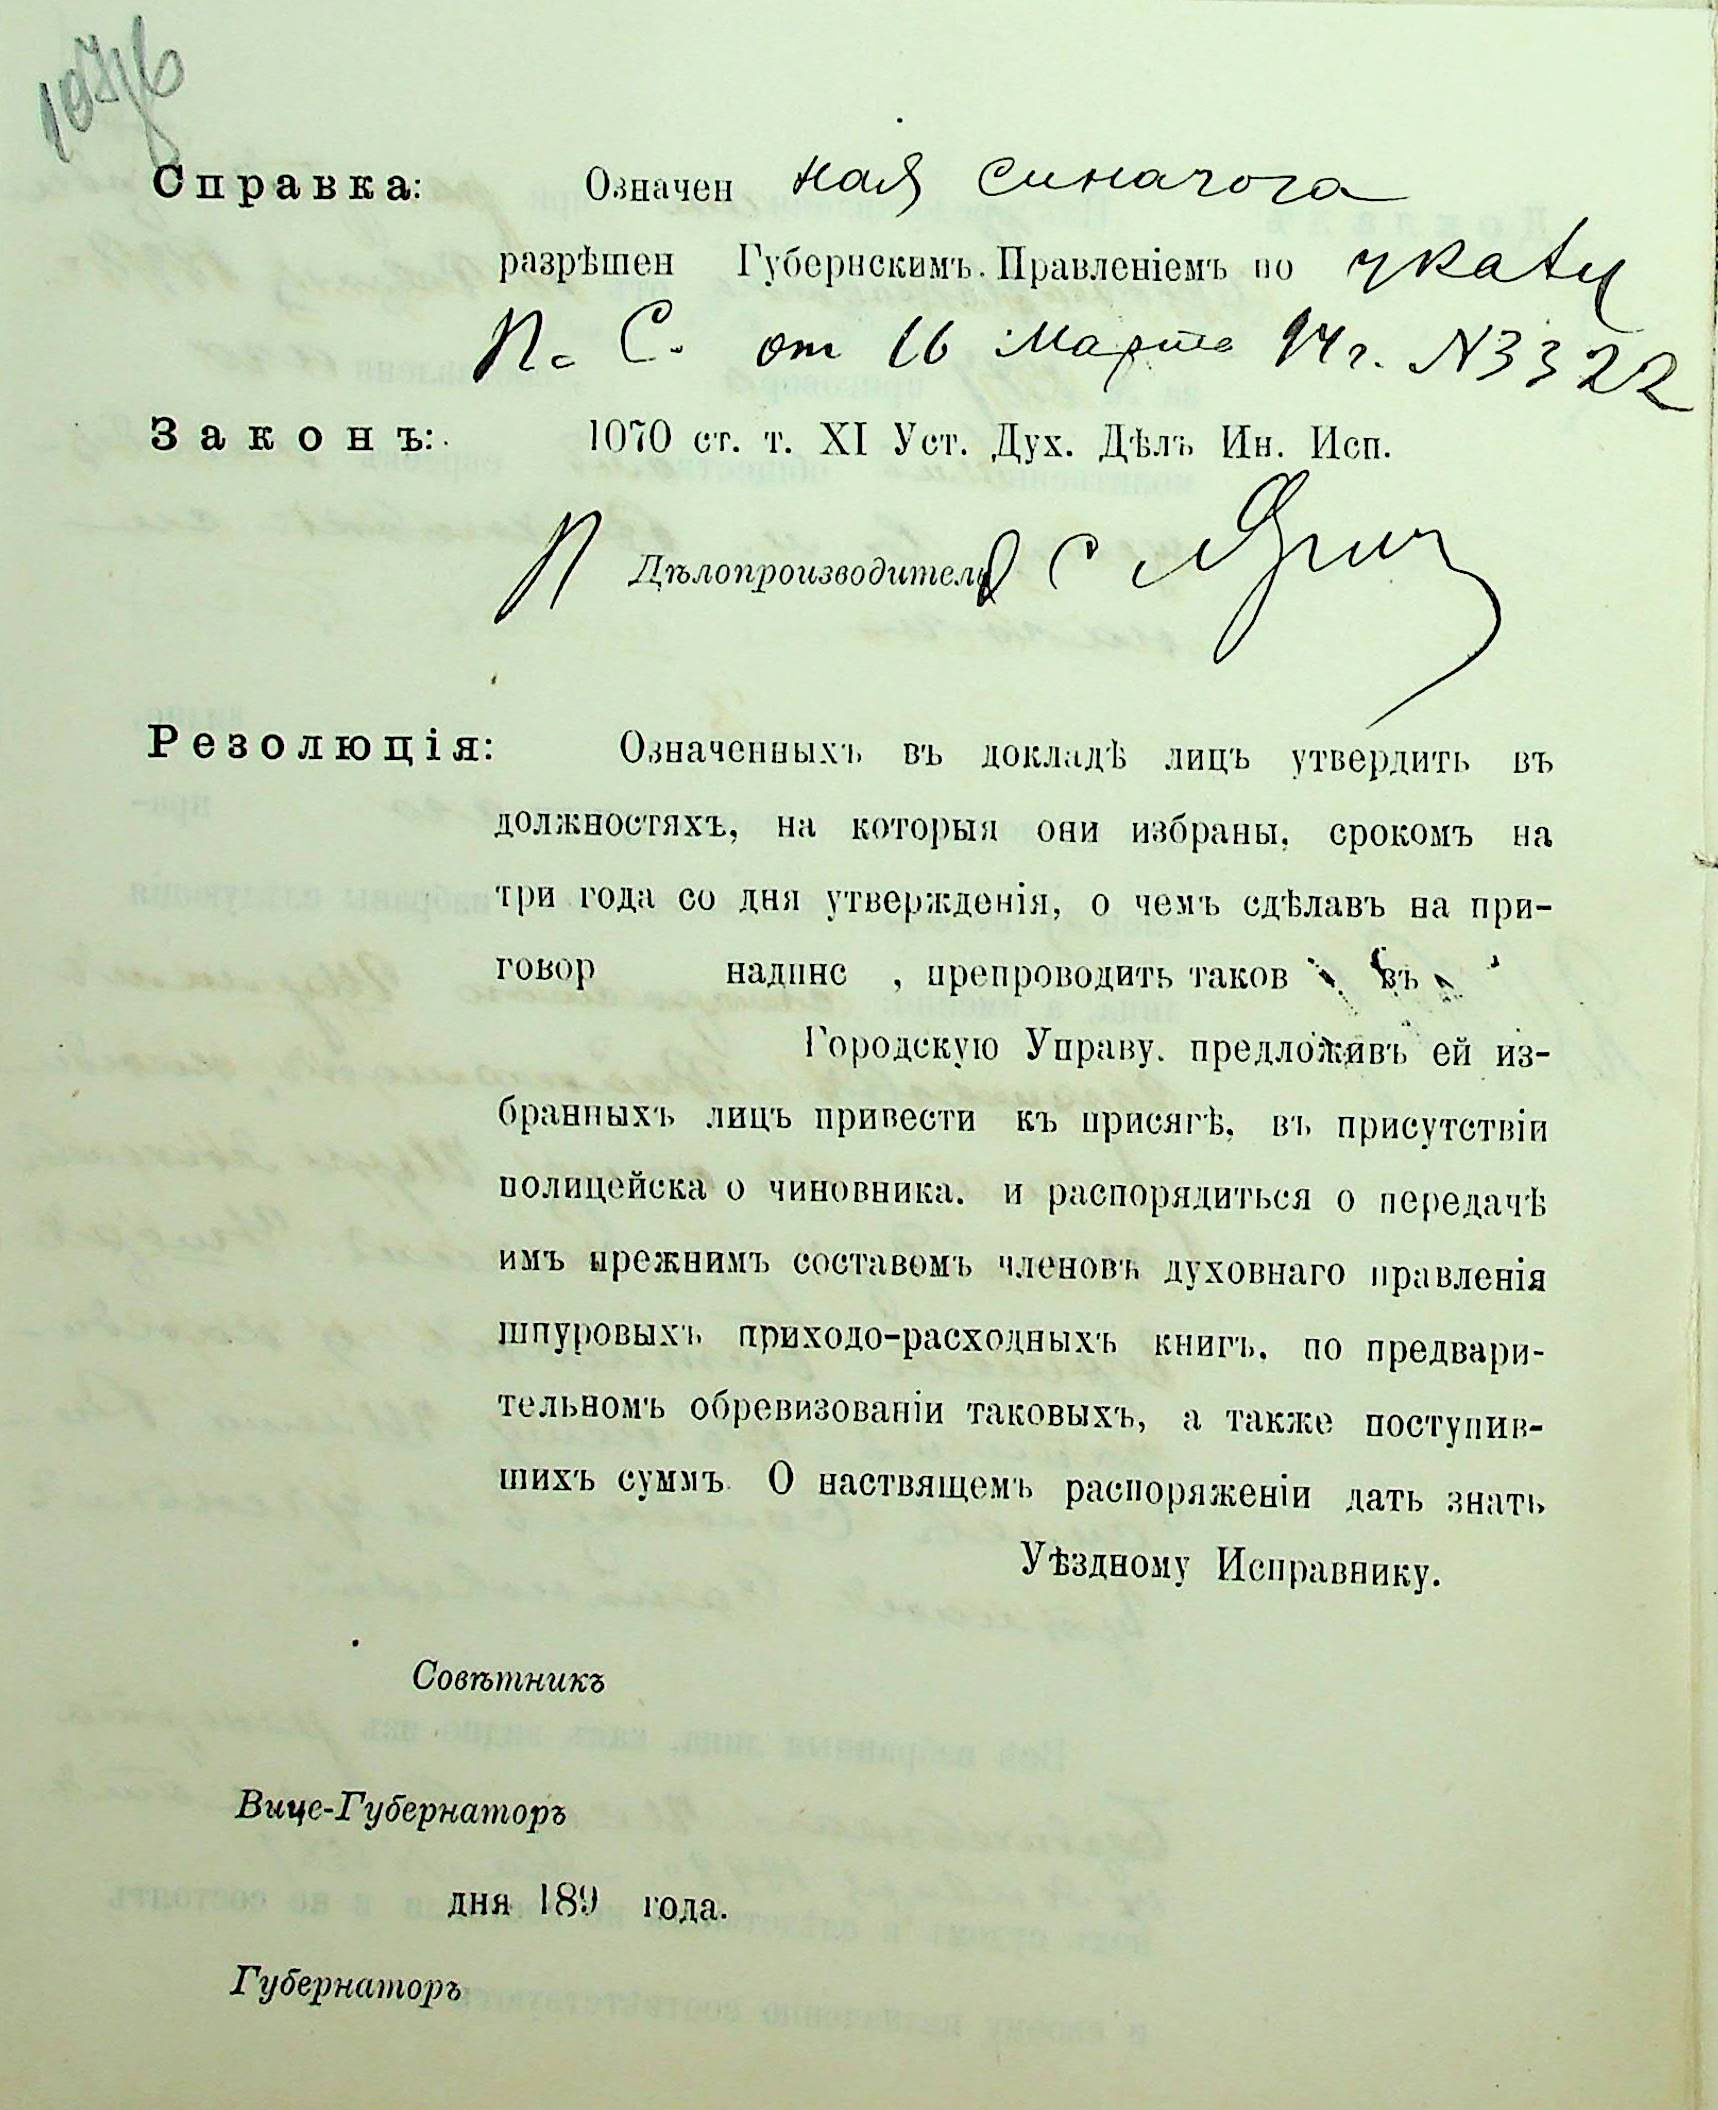 Справка: Означен ная синагога
разрѣшен Губернскимъ Правленіемъ по указу
П. С. от 16 Марта 94 г. N 3322
Законъ: 1070 ст. т. XI Уст. Дух. Дѣлъ Ин. Исп.
Дѣлопроизводитель
Резолюція: Означенныхъ въ докладѣ лицъ утвердить въ
должностяхъ, на которыя они избраны, срокомъ на
три года со дня утвержденія, о чемъ сдѣлавъ на при-
говор надпис , препроводить таков въ
Городскую Управу. предложивъ ей из-
бранныхъ лицъ привести къ присягѣ, въ присутствіи
полицейска о чиновника. и распорядиться о передачѣ
имъ прежнимъ составомъ членовъ духовнаго правленія
шнуровыхъ приходо-расходныхъ книгъ, по предвари-
тельномъ обревизованіи таковыхъ, а также поступив-
шихъ суммъ. О наствящемъ распоряженіи дать знать
Уѣздному Исправнику.
Совѣтникъ
Вице-Губернаторъ
дня 189 года.
Губернаторъ